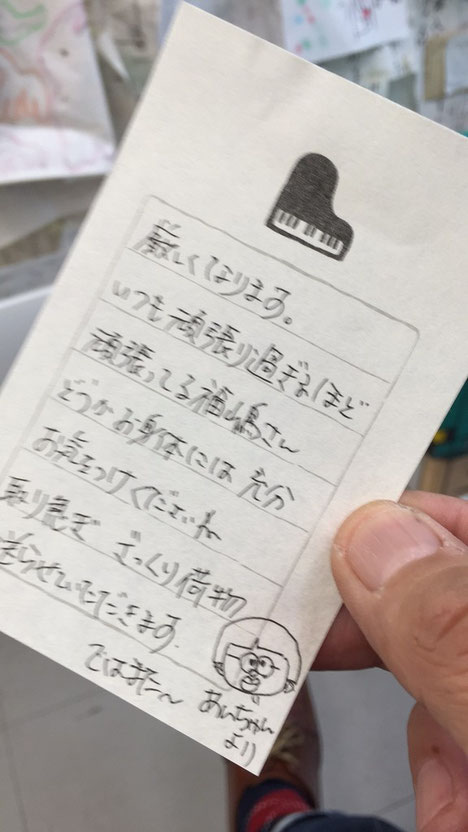 厳しくなります。
いつも頑張り過ぎるほど
頑張ってる福嶋さん
どうかお身体には充分
お気をつけくださいね
取り急ぎ ざっくり荷物
送らせていただきます.
ではまた〜
あんちゃん
より